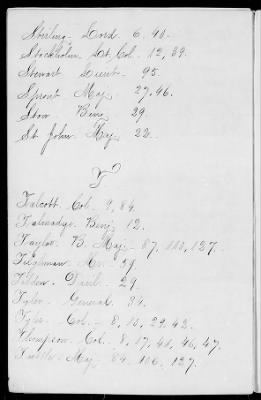 Sterling. Lord. 6. 40.
Stockholm Lt. Col. 12, 39.
Stewart Lieut. 95.
Sprout Maj. 27, 46.
Stow Benj. 29.
St John Maj. 22.
T
Talcott. Col. 9, 84.
Talmadge. Benj. 12.
Taylor B. Maj. 87, 110, 127.
Tilghman. Mr. 59.
Tilden. Danl. 29.
Tyler. General. 34.
Tyler. Col. 8, 10, 29, 42.
Thompson. Col. 8, 17, 40, 46, 47.
Tuttle. Maj. 84. 106. 127.